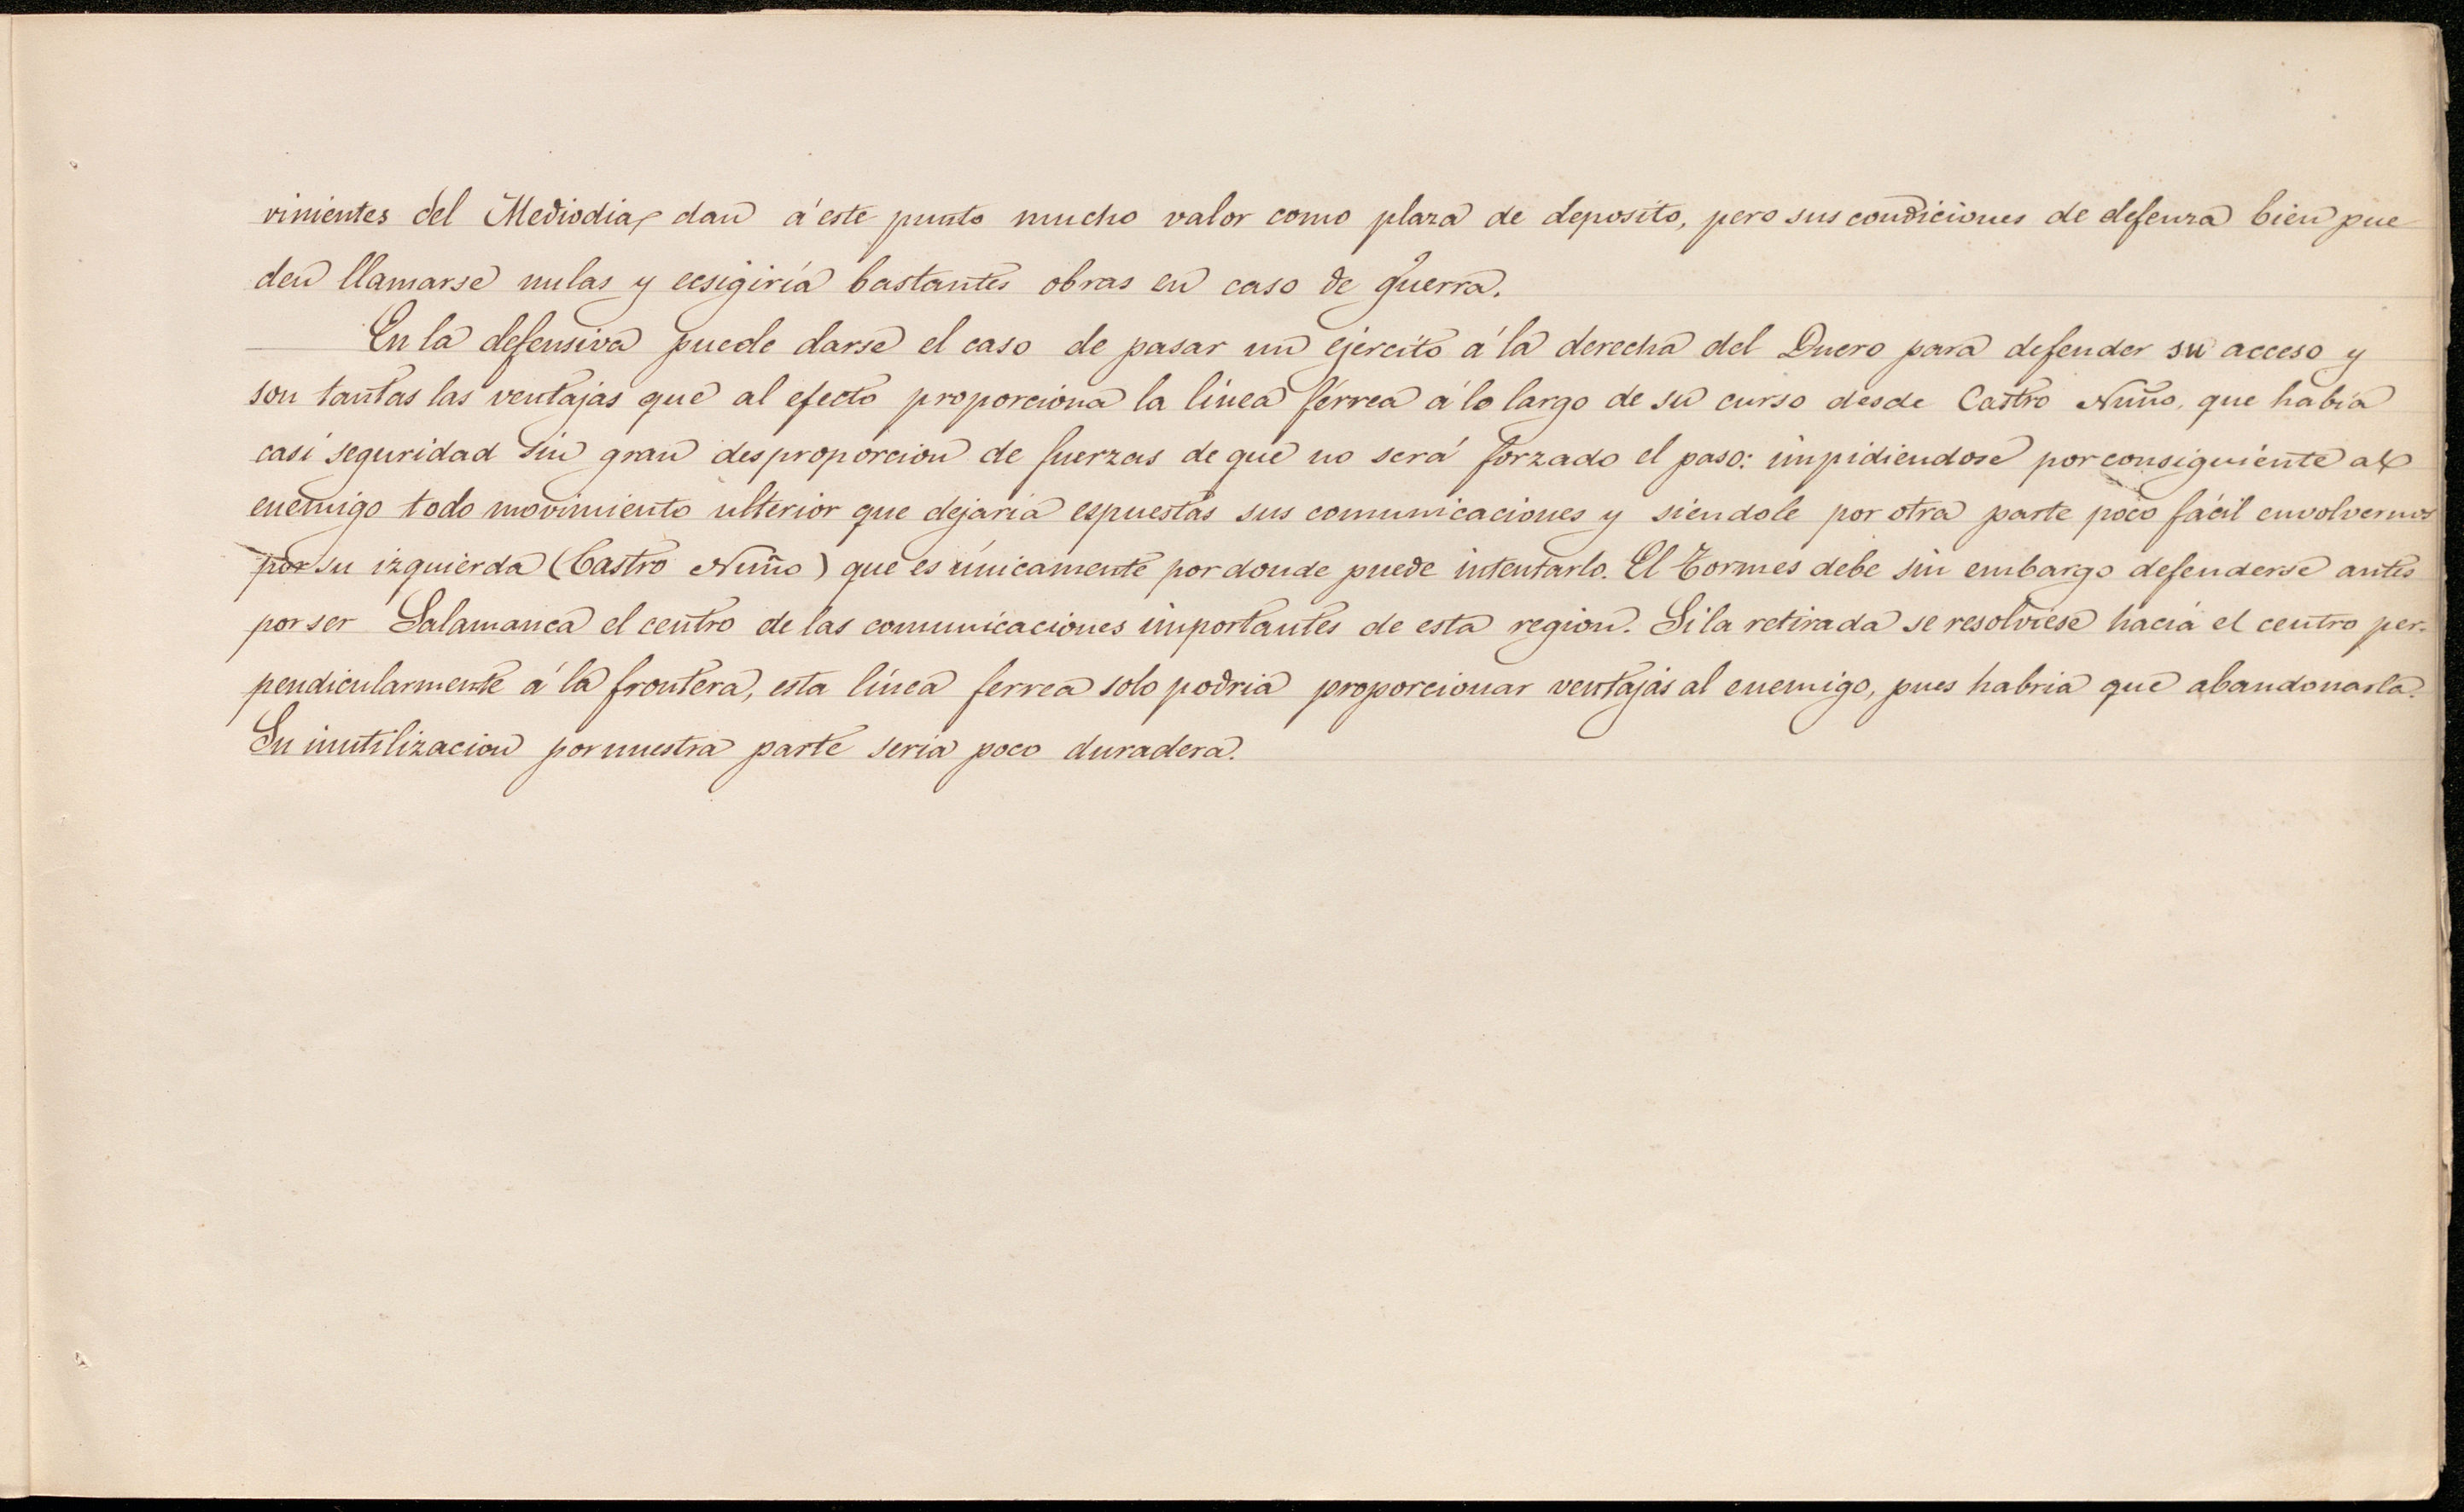 vinientes del Mediodia, dan á este punto mucho valor como plaza de deposito, pero sus condiciones de defenza bien pue
den llamarse nulas y ecsigiría bastantes obras en caso de guerra.
En la defensiva puede darse el caso de pasar un ejército á la derecha del Duero para defender su acceso y
son tantas las ventajas que al efecto proporciona la línea férrea á lo largo de su curso desde Castro Nuño, que habia
casi seguridad sin gran desproporcion de fuerzas de que no será forzado el paso: impidiendose por consiguiente al
enemigo todo movimiento ulterior que dejaría espuestas sus comunicaciones y siendole por otra parte poco fácil envolvernos
por su izquierda (Castro Nuño) que es únicamente por donde puede intentarlo. El Tormes debe sin embargo defenderse antes
por ser Salamanca el centro de las comunicaciones importantes de esta region. Si la retirada se resolviese hacia el centro per-
pendicularmente á la frontera, esta línea ferrea solo podria proporcionar ventajas al enemigo, pues habria que abandonarla.
Su inutilizacion por nuestra parte seria poco duradera.